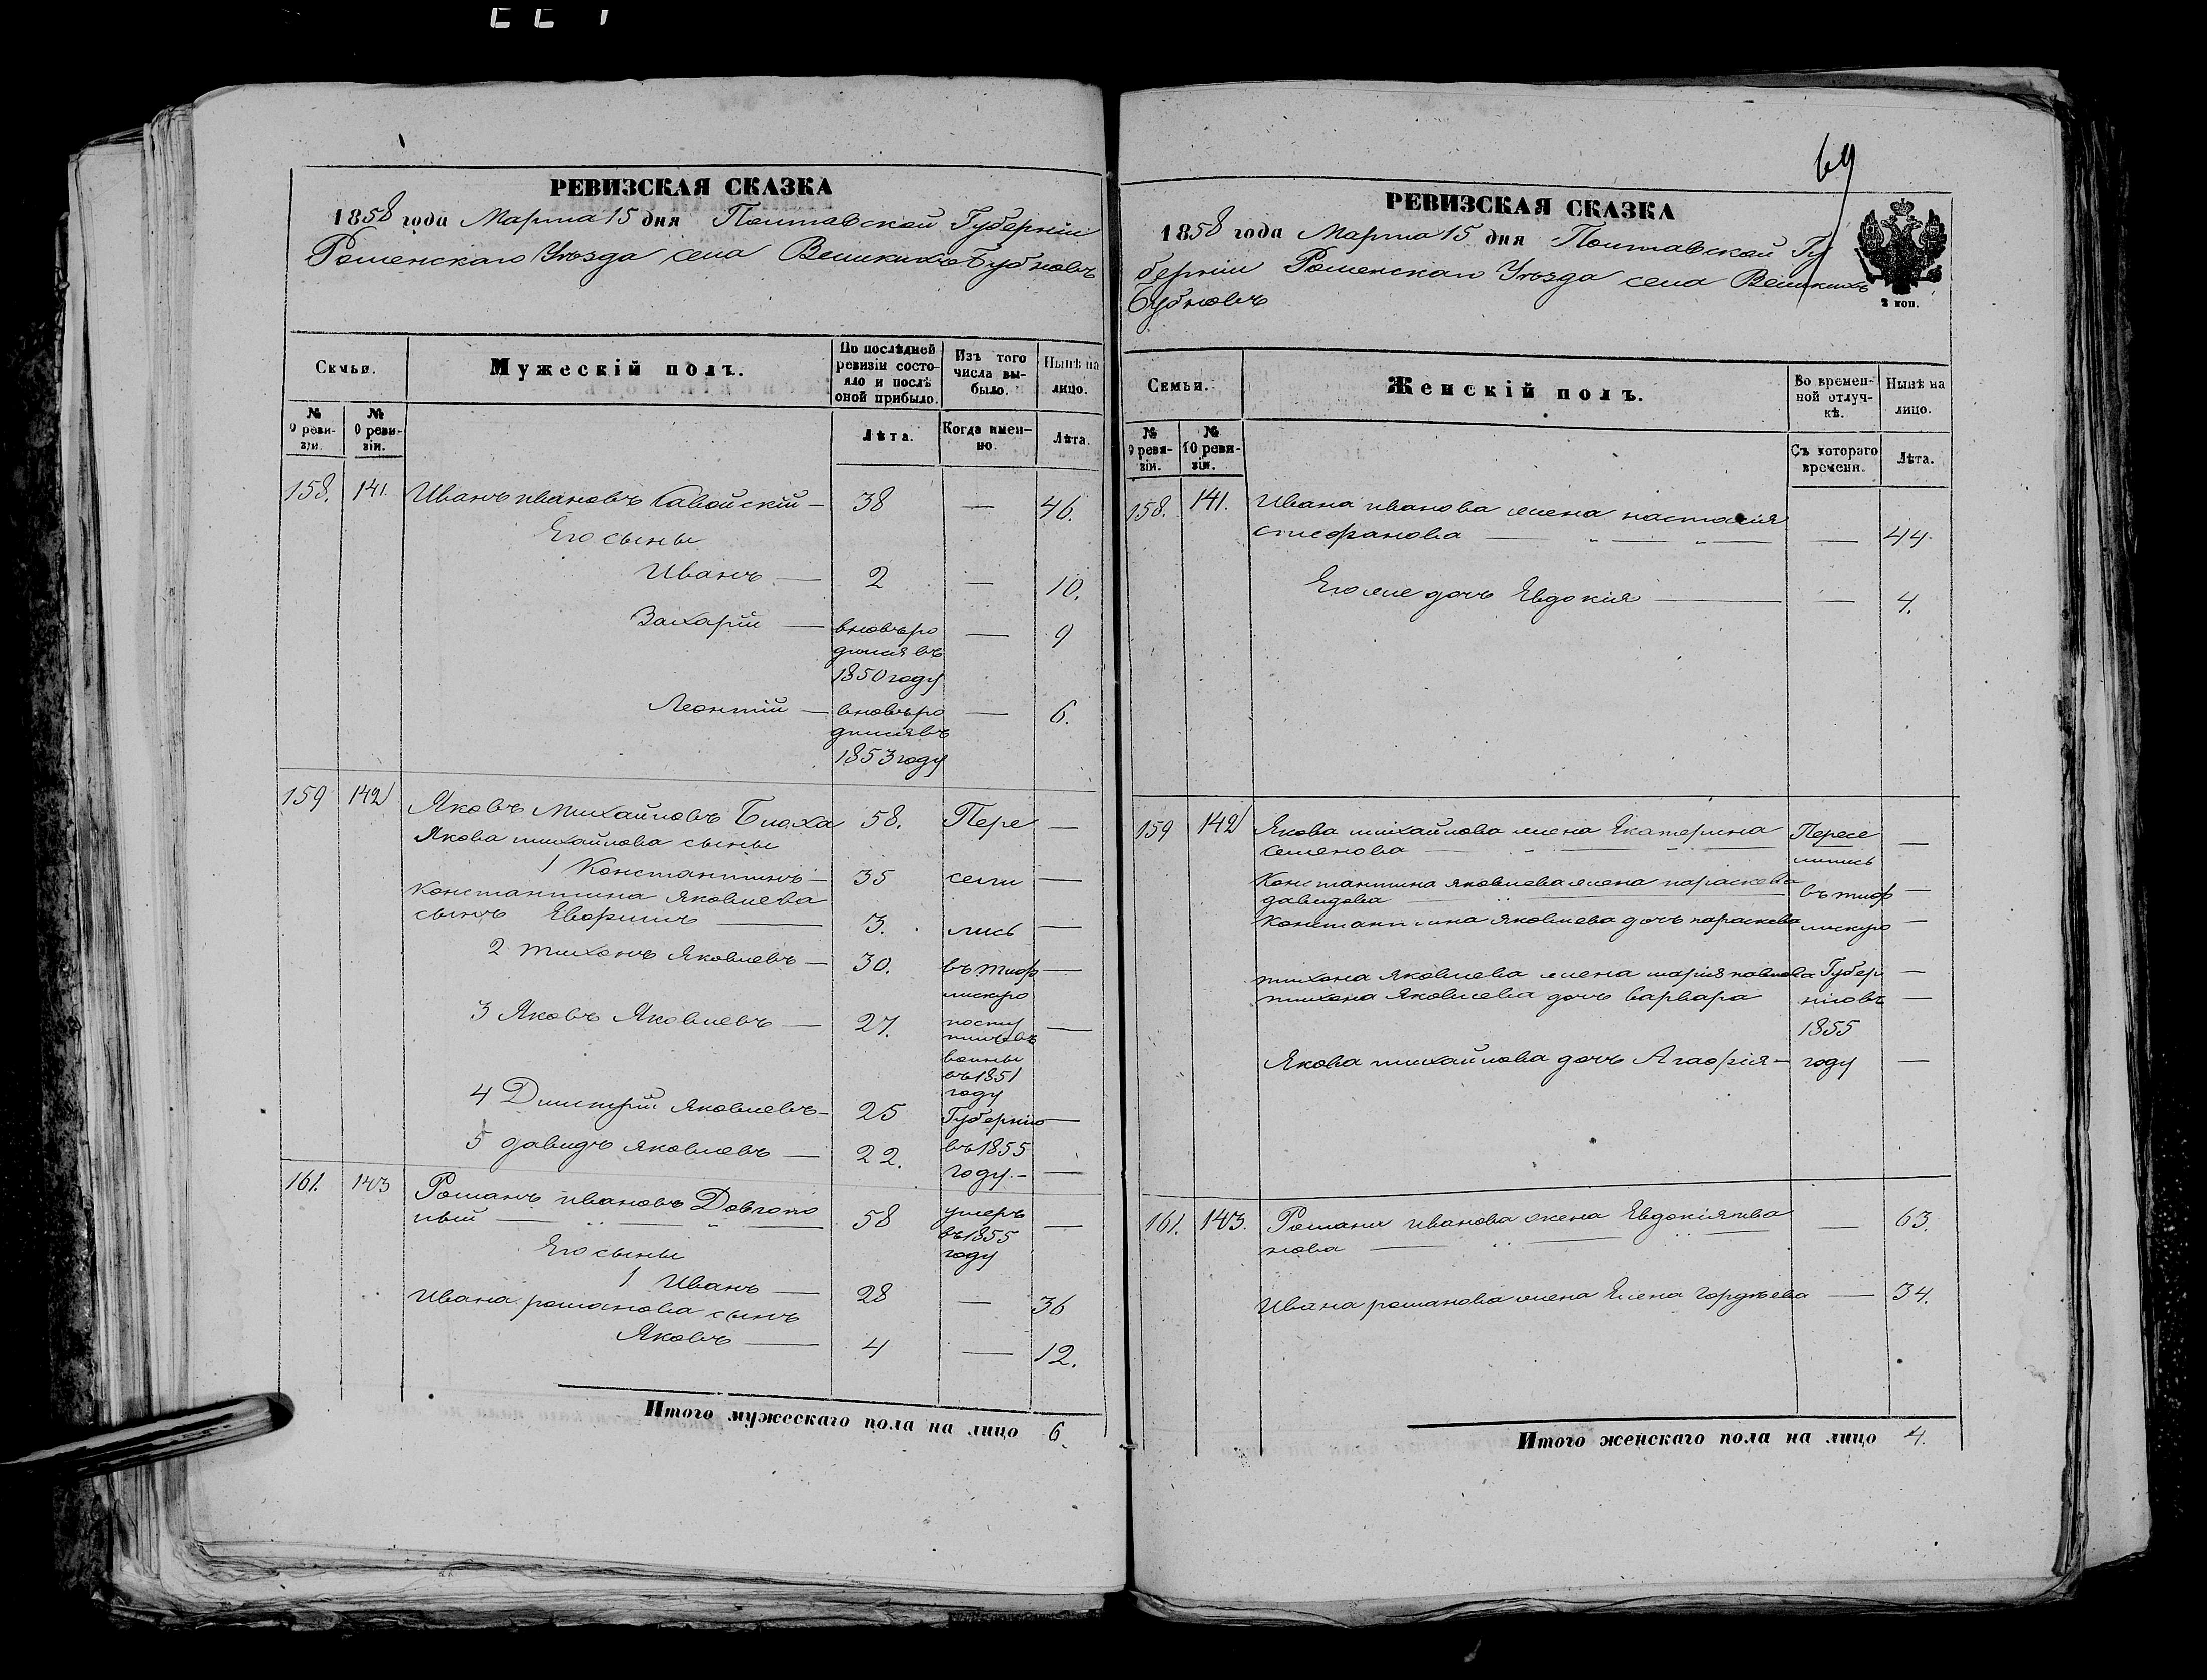 РЕВИЗСКАЯ СКАЗКА
1858 года Марта 15 дня Полтавской Губерніи
Роменскаго Уѣзда села Великихъ Бубновъ
Семьи.
Мужескій полъ.
По послѣдней ревизіи состояло и послѣ оной прибыло.
Изъ того числа выбыло.
Нынѣ на лицо.
№ 9 ревизіи.
№ 10 ревизіи.
Лѣта.
Когда именно.
Лѣта.
158. 141. Иванъ ивановъ Савойскій — 38 — 46.
Его сыны
Иванъ — 2 — 10.
Захарій — вновь ро — 9
дился въ
1850 году
Леонтій — вновь ро — 6.
дился въ
1853 году
159 142 Яковъ михайловъ Блоха 58. Пере —
Якова михайлова сыны
1 Константинъ — 35 сели —
Константина Яковлева
сынъ Евфимъ — 3. лись —
2 тихонъ Яковлевъ — 30. въ тиф —
лискую
3 Яковъ Яковлевъ — 27. посту —
пилъ въ
воины
въ 1851
году
4 Димитрій Яковлевъ — 25 Губернію —
5 давидъ Яковлевъ — 22. въ 1855
году. — —
161. 143 Романъ ивановъ Довгопо
лый — 58 умеръ —
въ 1855
году
Его сыны
1 Иванъ — 28 — 36
Ивана романова сынъ
Яковъ — 4 — 12.
Итого мужескаго пола на лицо 6.
69
РЕВИЗСКАЯ СКАЗКА
1858 года Марта 15 дня Полтавской Гу
берніи Роменскаго Уѣзда села Великихъ
Бубновъ
2 коп.
Семьи.
Женскій полъ.
Во временной отлучкѣ.
Нынѣ на лицо.
№ 9 ревизіи.
№ 10 ревизіи.
Съ котораго времени.
Лѣта.
158. 141. Ивана иванова жена настасія
стефанова — — 44.
Его же дочь Евдокія — — 4.
159 142 Якова михайлова жена Екатерина Пересе
семенова — лились —
Константина яковлева жена параскева
давидова — въ тиф —
Константина Яковлева дочь параскева лискую —
тихона Яковлева жена марія павлова Губер —
тихона Яковлева дочь варвара нію въ —
1855
Якова михайлова дочь Агафія — году —
161. 143. Романа иванова жена Евдокія ива
нова — — 63.
Ивана романова жена Елена Гордѣева — 34.
Итого женскаго пола на лицо 4.